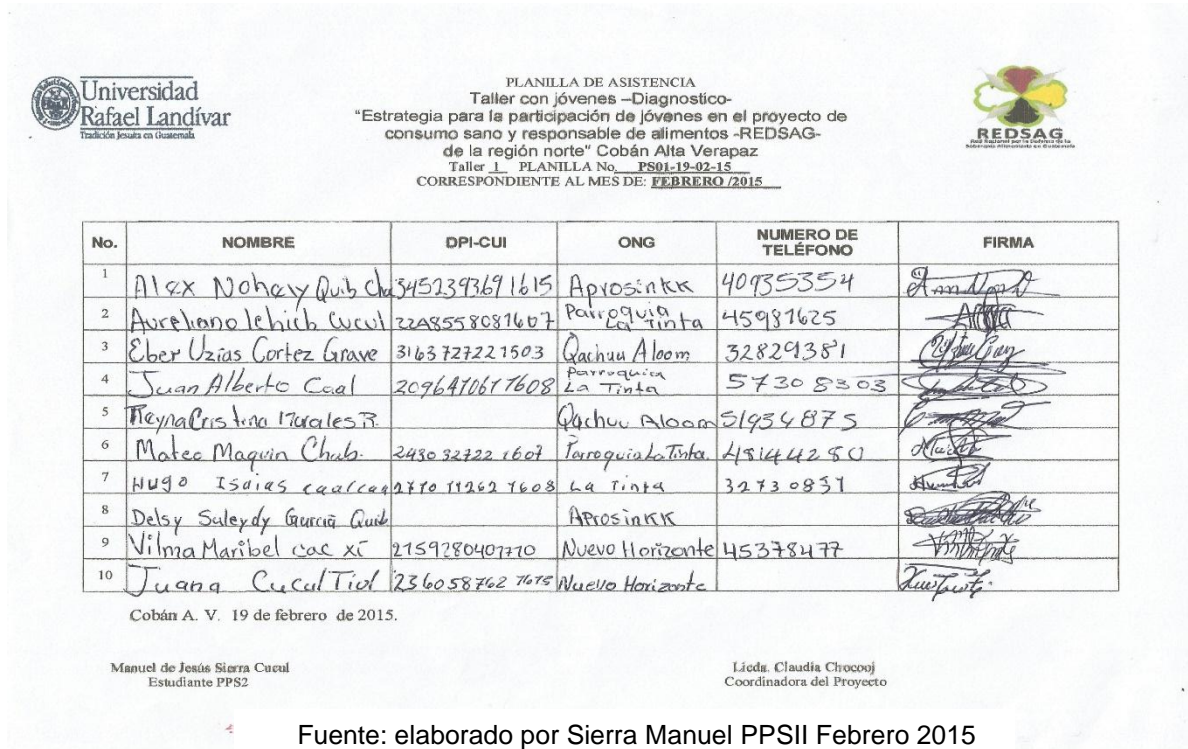 Universidad
Rafael Landívar
Tradición Jesuita en Guatemala
PLANILLA DE ASISTENCIA
Taller con jóvenes –Diagnostico-
"Estrategia para la participación de jóvenes en el proyecto de
consumo sano y responsable de alimentos -REDSAG-
de la región norte" Cobán Alta Verapaz
Taller 1 PLANILLA No. PS01-19-02-15
CORRESPONDIENTE AL MES DE: FEBRERO /2015
REDSAG
Red Regional por la Defensa de la
Soberanía Alimentaria en Guatemala
No. NOMBRE DPI-CUI ONG NUMERO DE TELÉFONO FIRMA
1 Alex Nohely Quib Aprosinkk
2 Aureliano Cucul Parroquia La Tinta 45981625
3 Eber Uzias Cortez Grave 3163727221503 Qachuu Aloom 32829381
4 Juan Alberto Caal Parroquia La Tinta 57308303
5 Reyna Cristina Morales R. Qachuu Aloom 51934875
6 Mateo Maquin Chub. 2430 32722 1607 Parroquia La Tinta. 48144280
7 Hugo Isaias caal La Tinta
8 Delsy Suleydy García Quib Aprosinkk
9 Vilma Maribel cac xí 2159280401710 Nuevo Horizonte 45378477
10 Juana Cucul Tiul Nuevo Horizonte
Cobán A. V. 19 de febrero de 2015.
Manuel de Jesús Sierra Cucul
Estudiante PPS2
Licda. Claudia Chocooj
Coordinadora del Proyecto
Fuente: elaborado por Sierra Manuel PPSII Febrero 2015